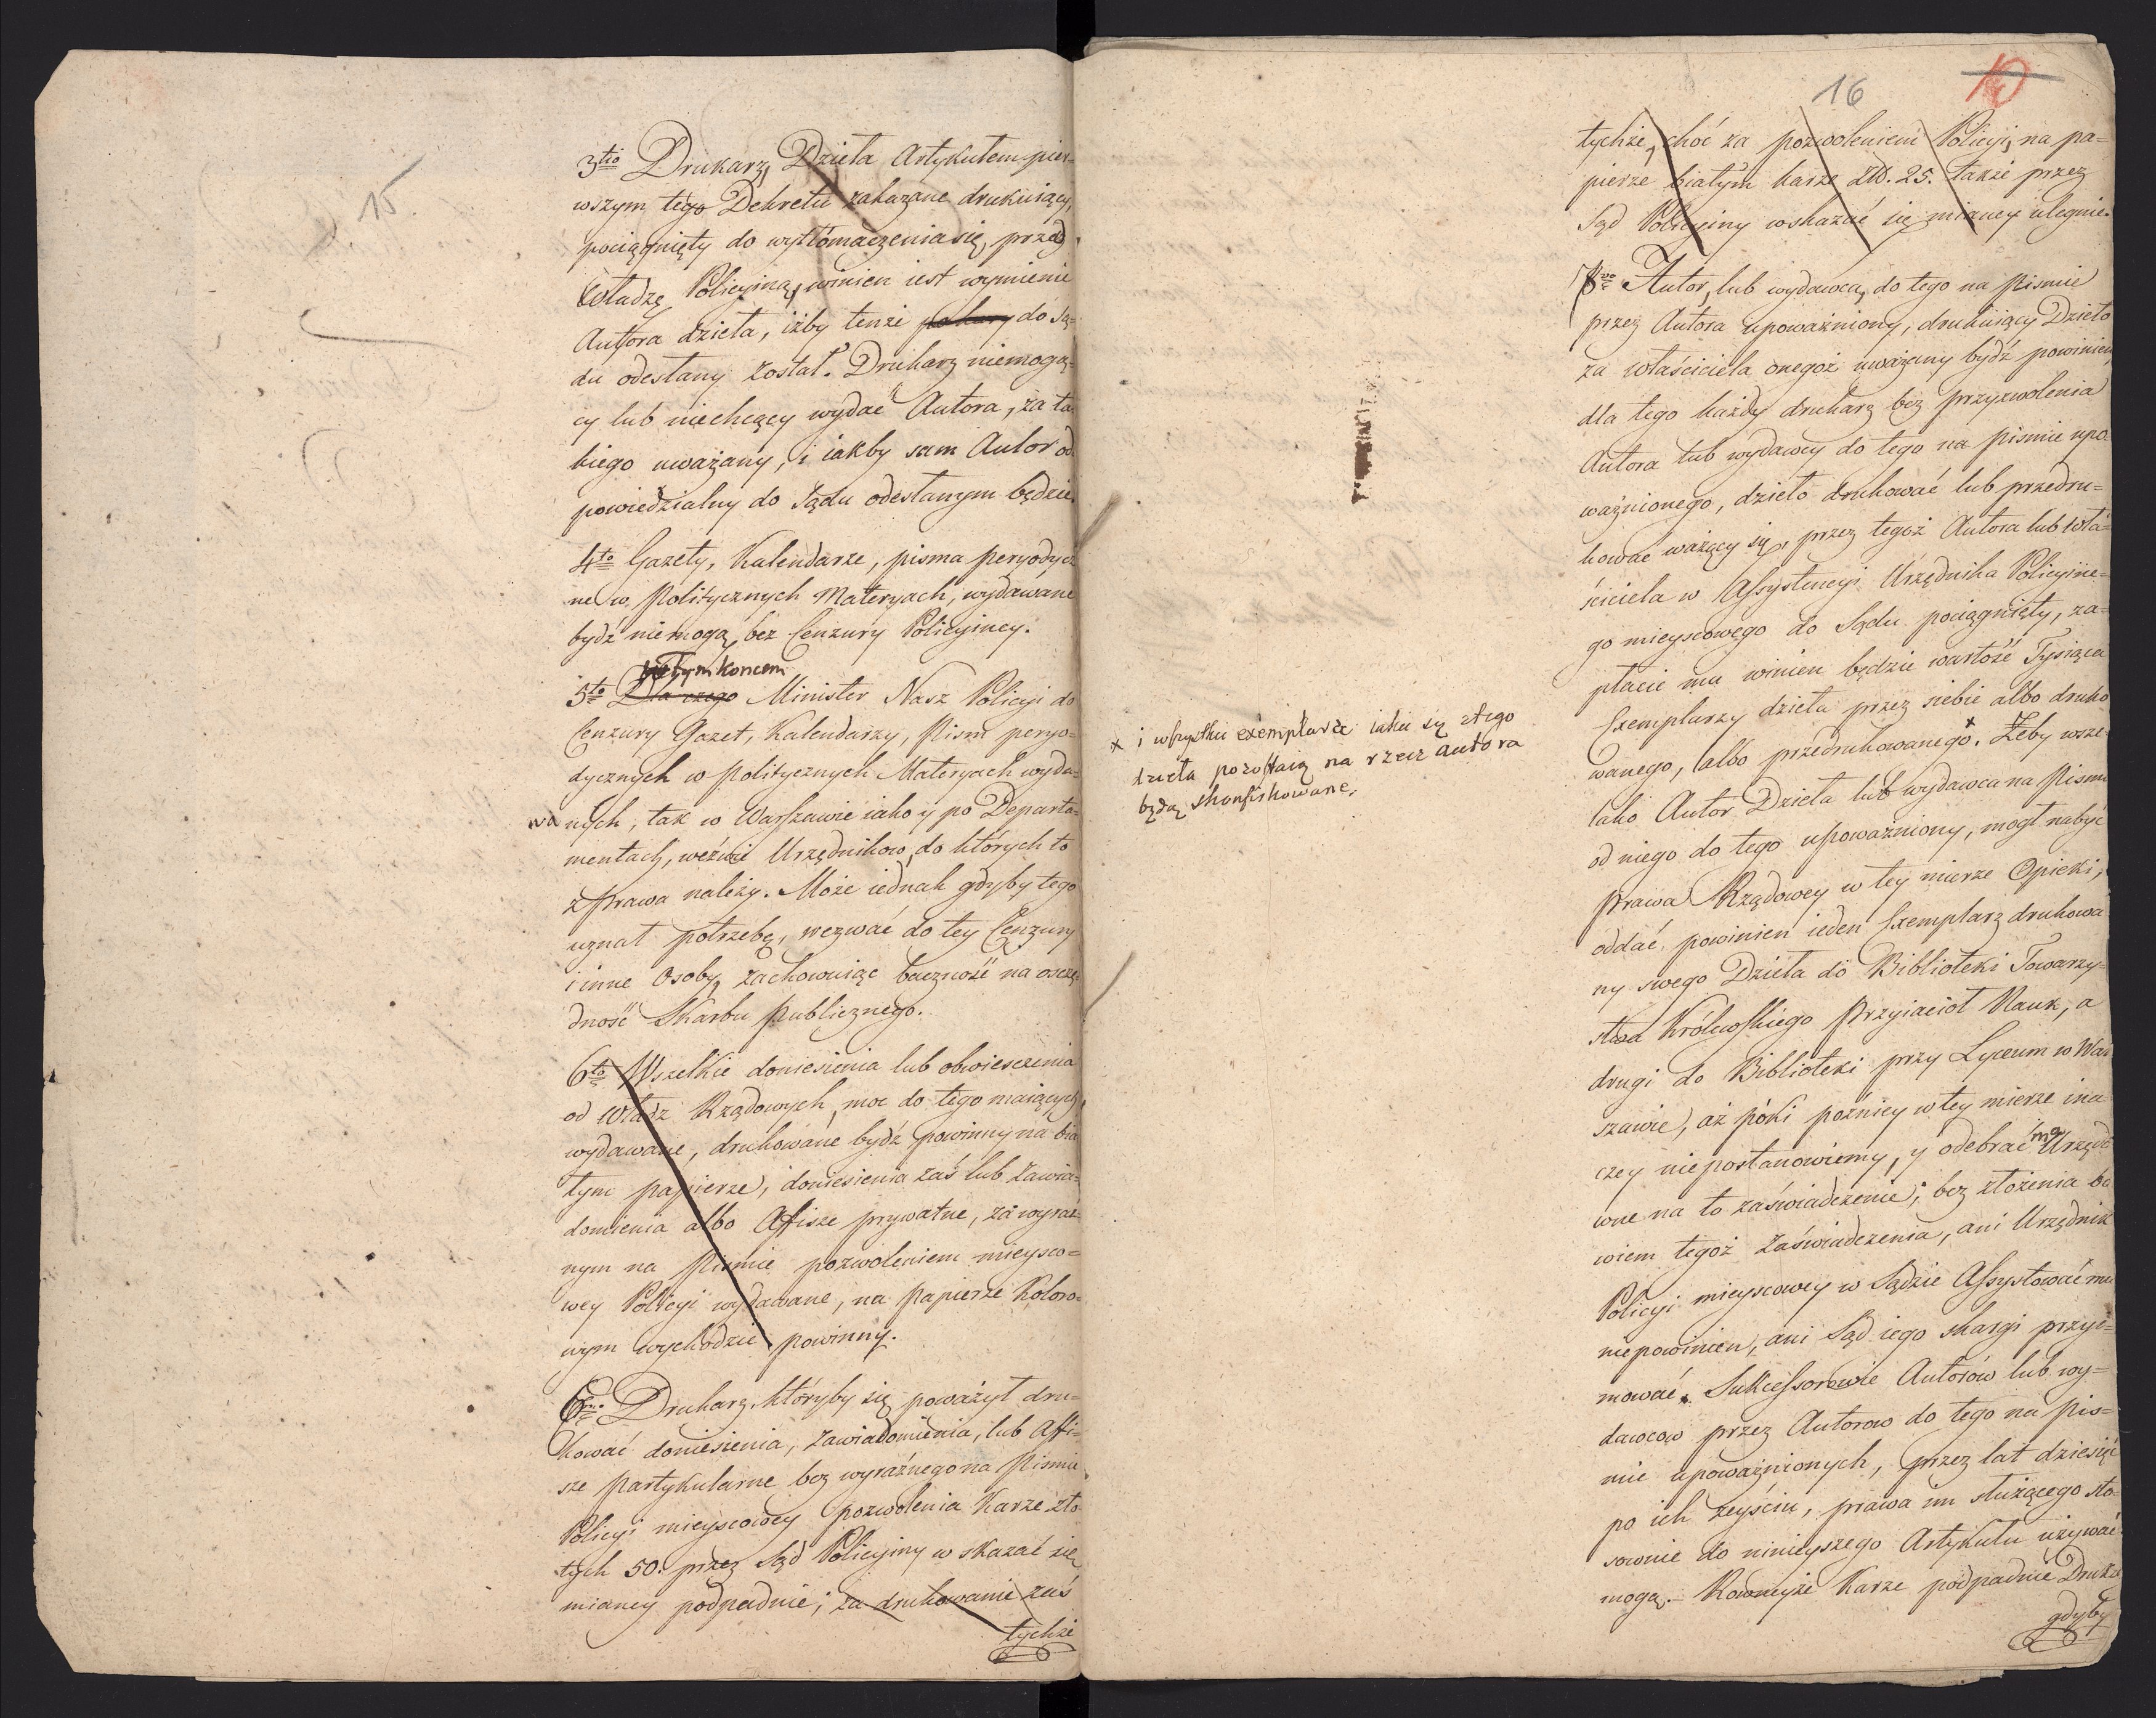 15
3tio Drukarz, Dzieła Artykułem pier-
wszym tego Dekretu zakazane drukuiący,
pociągnięty do wytłómaczenia się, przed
Władzę Policyiną, winien iest wymienic
Autora dzieła, iżby tenże pokary do Są-
du odesłany został. Drukarz niemogą-
cy lub niechcący wydać Autora, za ta-
kiego uważany, i iakby sam Autor od
powiedzialny do Sądu odesłanym będzie.
4to Gazety, Kalendarze, pisma peryodycz
ne w Politycznych Materyach, wydawane
bydź niemogą, bez Cenzury Policyiney.
tym koncem
5to Dla czego Minister Nasz Policyi do
Cenzury Gazet, Kalendarzy, Pism peryo-
dycznych w Politycznych Materyach wyda-
wa nych, tak w Warszawie iako y po Departa-
mentach, weźmie Urzędnikow, do których to
z prawa należy. Może iednak gdyby tego
uznał potrzebę, wezwać do tey Cenzury
i inne Osoby, zachowuiąc baczność na oszczę
dność Skarbu Publicznego.
6to Wszelkie doniesienia lub obwiesczenia
od Władz Rządowych, moc do tego maiących,
wydawane, drukowane bydź powinny na bia
łym papierze; doniesienia zaś lub zawia-
domienia albo Afisze prywatne, za wyraź-
nym na Piśmie pozwoleniem mieysco-
wey Policyi wydawane, na papierze Koloro-
wym wychodzić powinny.
6mo Drukarz któryby się poważył dru-
kować doniesienia, zawiadomienia, lub Affi-
sze partykularne bez wyraźnego na Piśmie
Policyi mieyscowey pozwolenia Karze zło-
tych 50. przez Sąd Policyiny wskazać się
mianey podpadnie; za drukowanie zaś
tychże
16
10
tychże, choć za pozwoleniem Policyi, na pa-
pierze białym karze Złł. 25. także przez
Sąd Policyiny wskazać się mianey ulegnie.
8vo Autor, lub wydawca, do tego na Pismie
przez Autora upoważniony, drukuiący Dzieło
za właściciela onegoż uważany bydź powinien,
dla tego każdy drukarz bez przyzwolenia
Autora lub wydawcy do tego na piśmie upo-
ważnionego, dzieło drukować lub przedru-
kować ważący się, przez tegoż Autora lub Wła-
ściciela w Assystencyi Urzędnika Policyine-
go mieyscowego do Sądu pociągnięty, za-
płacić mu winien będzie wartość Tysiąca
Exemplarzy dzieła przez siebie albo druko
wanego, albo przedrukowanego. x Żeby wsze-
lako Autor Dzieła lub wydawca na Pismie
od niego do tego upoważniony, mogł nabyć
Prawa Rządowey w tey mierze Opieki,
oddać powinien ieden Exemplarz drukowa
ny swego Dzieła do Biblioteki Towarzy-
stwa Królewskiego Przyiaciół Nauk, a
drugi do Biblioteki przy Lyceum w War
szawie, aż póki poźniey w tey mierze ina
czey niepostanowiemy, y odebrać ma Urzędo
wne na to zaświadczenie; bez złożenia bo
wiem tegoż Zaświadczenia, ani Urzędnik
Policyi mieyscowey w Sądzie Assystować mu
niepowinien, ani Sąd iego skargi przyi-
mować. Sukcessorowie Autorów lub wy-
dawcow przez Autorow do tego na pis-
mie upoważnionych, przez lat dziesięć
po ich zeyściu, prawa im służącego sto-
sownie do ninieyszego Artykułu używać
mogą. Rowneyże Karze podpadnie Drukarz
gdyby
x i wszystkie exemplarze iakie się z tego
dzieła pozostaią na rzecz autora
będą skonfiskowane.